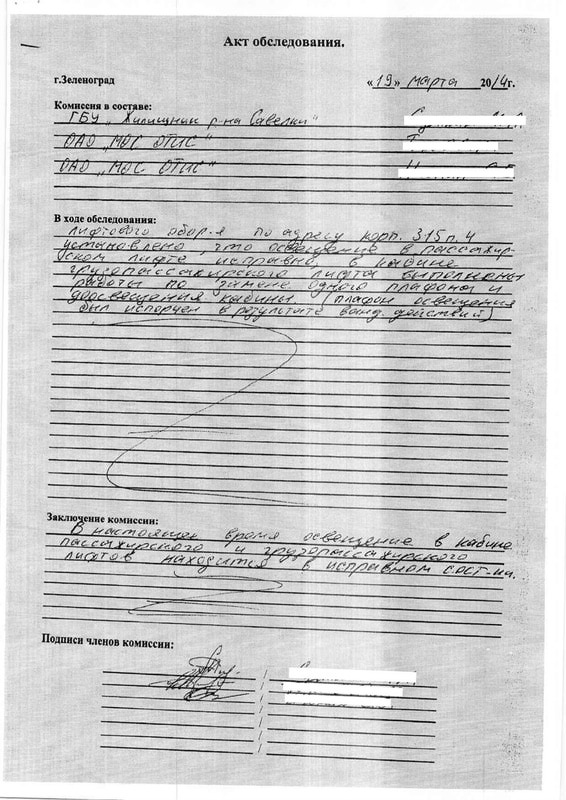 Акт обследования.
г.Зеленоград «19» марта 2014г.
Комиссия в составе:
ГБУ „Жилищник р-на Савелки"
ОАО „МОС ОТИС"
ОАО „МОС ОТИС"
В ходе обследования:
лифтового обор-я по адресу корп. 315 п. 4
установлено, что освещение в пассажир-
ском лифте исправно, в кабине
грузопассажирского лифта выполнены
работы по замене одного плафона и
освещения кабины. (плафон освещения
был испорчен в результате ванд. действий)
Заключение комиссии:
В настоящее время освещение в кабине
пассажирского и грузопассажирского
лифтов находится в исправном сост-ии.
Подписи членов комиссии: